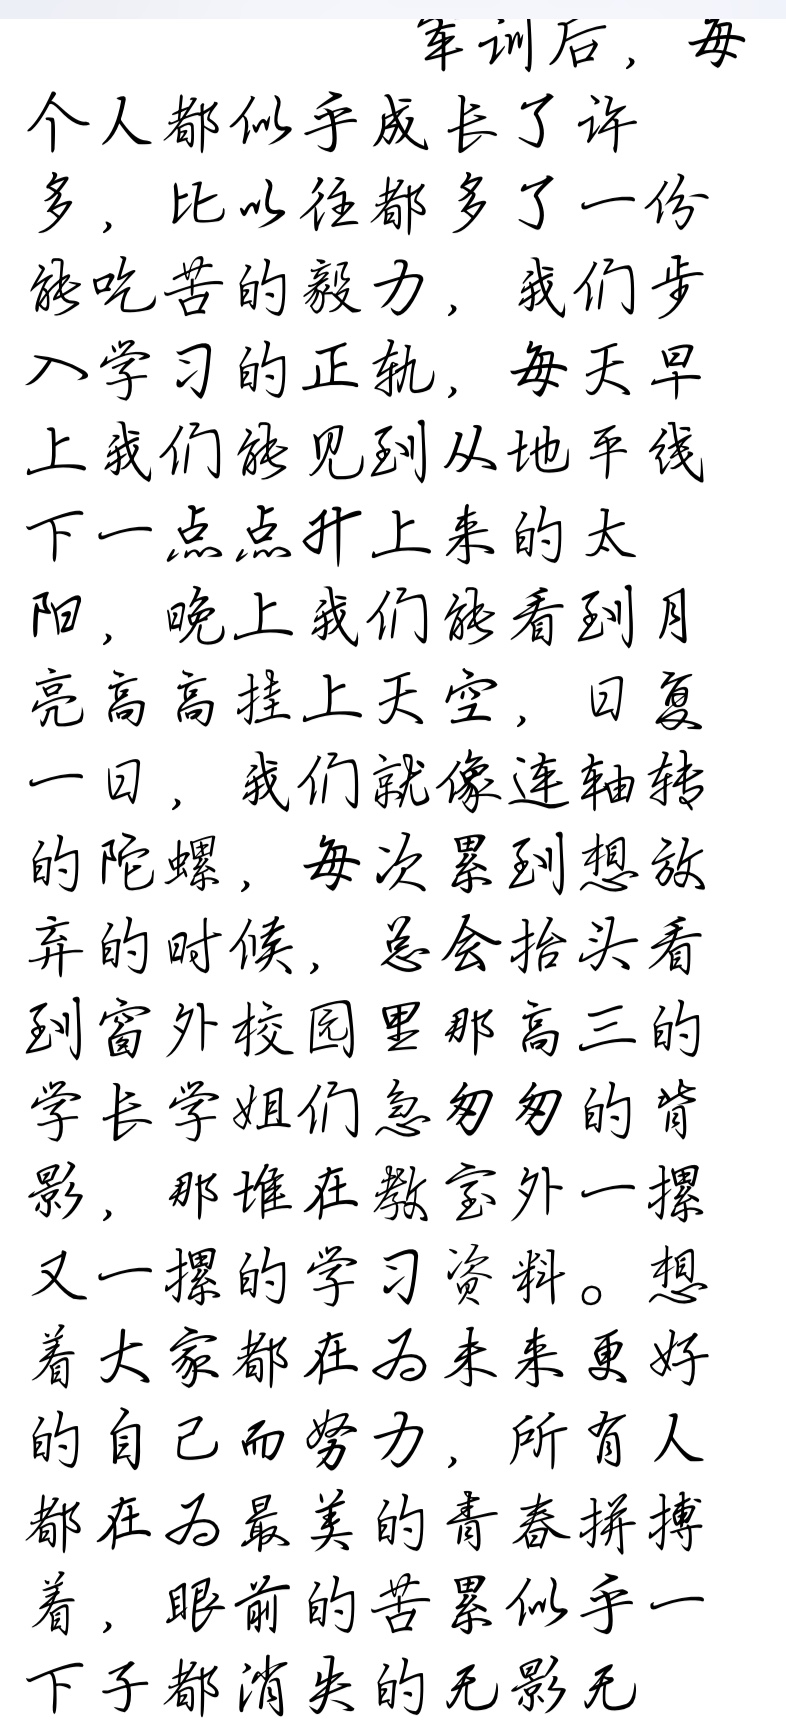 军训后，每
个人都似乎成长了许
多，比以往都多了一份
能吃苦的毅力，我们步
入学习的正轨，每天早
上我们能见到从地平线
下一点点升上来的太
阳，晚上我们能看到月
亮高高挂上天空，日复
一日，我们就像连轴转
的陀螺，每次累到想放
弃的时候，总会抬头看
到窗外校园里那高三的
学长学姐们忽匆匆的背
影，那堆在教室外一摞
又一摞的学习资料。想
着大家都在为未来更好
的自己而努力，所有人
都在为最美的青春拼搏
着，眼前的苦累似乎一
下子都消失的无影无